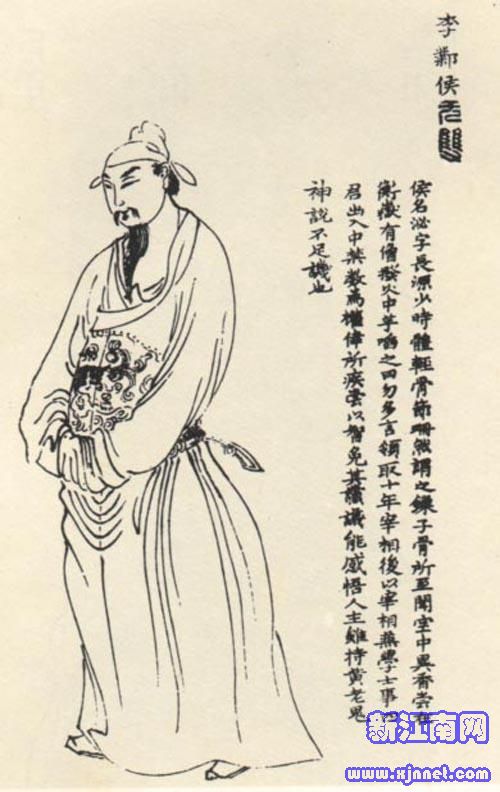 李鄴侯
侯名泌字長源少時體輕骨節珊然謂之鏁子骨所至聞室中異香嘗在
衡嶽有僧撥火中芋啗之曰勿多言領取十年宰相後以宰相兼學士事四
君出入中禁數為權倖所疾嘗以智免其讜議能感悟人主雖持黃老鬼
神說不足譏也
新江南网
www.xjnnet.com